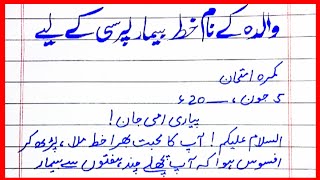 والدہ کے نام خط بیمار پرسی کے لیے
کمرہ امتحان
5 جون ، ــــ20ء
پیاری امی جان!
السلام علیکم! آپ کا محبت بھرا خط ملا، پڑھ کر
افسوس ہوا کہ آپ پچھلے چند ہفتوں سے بیمار